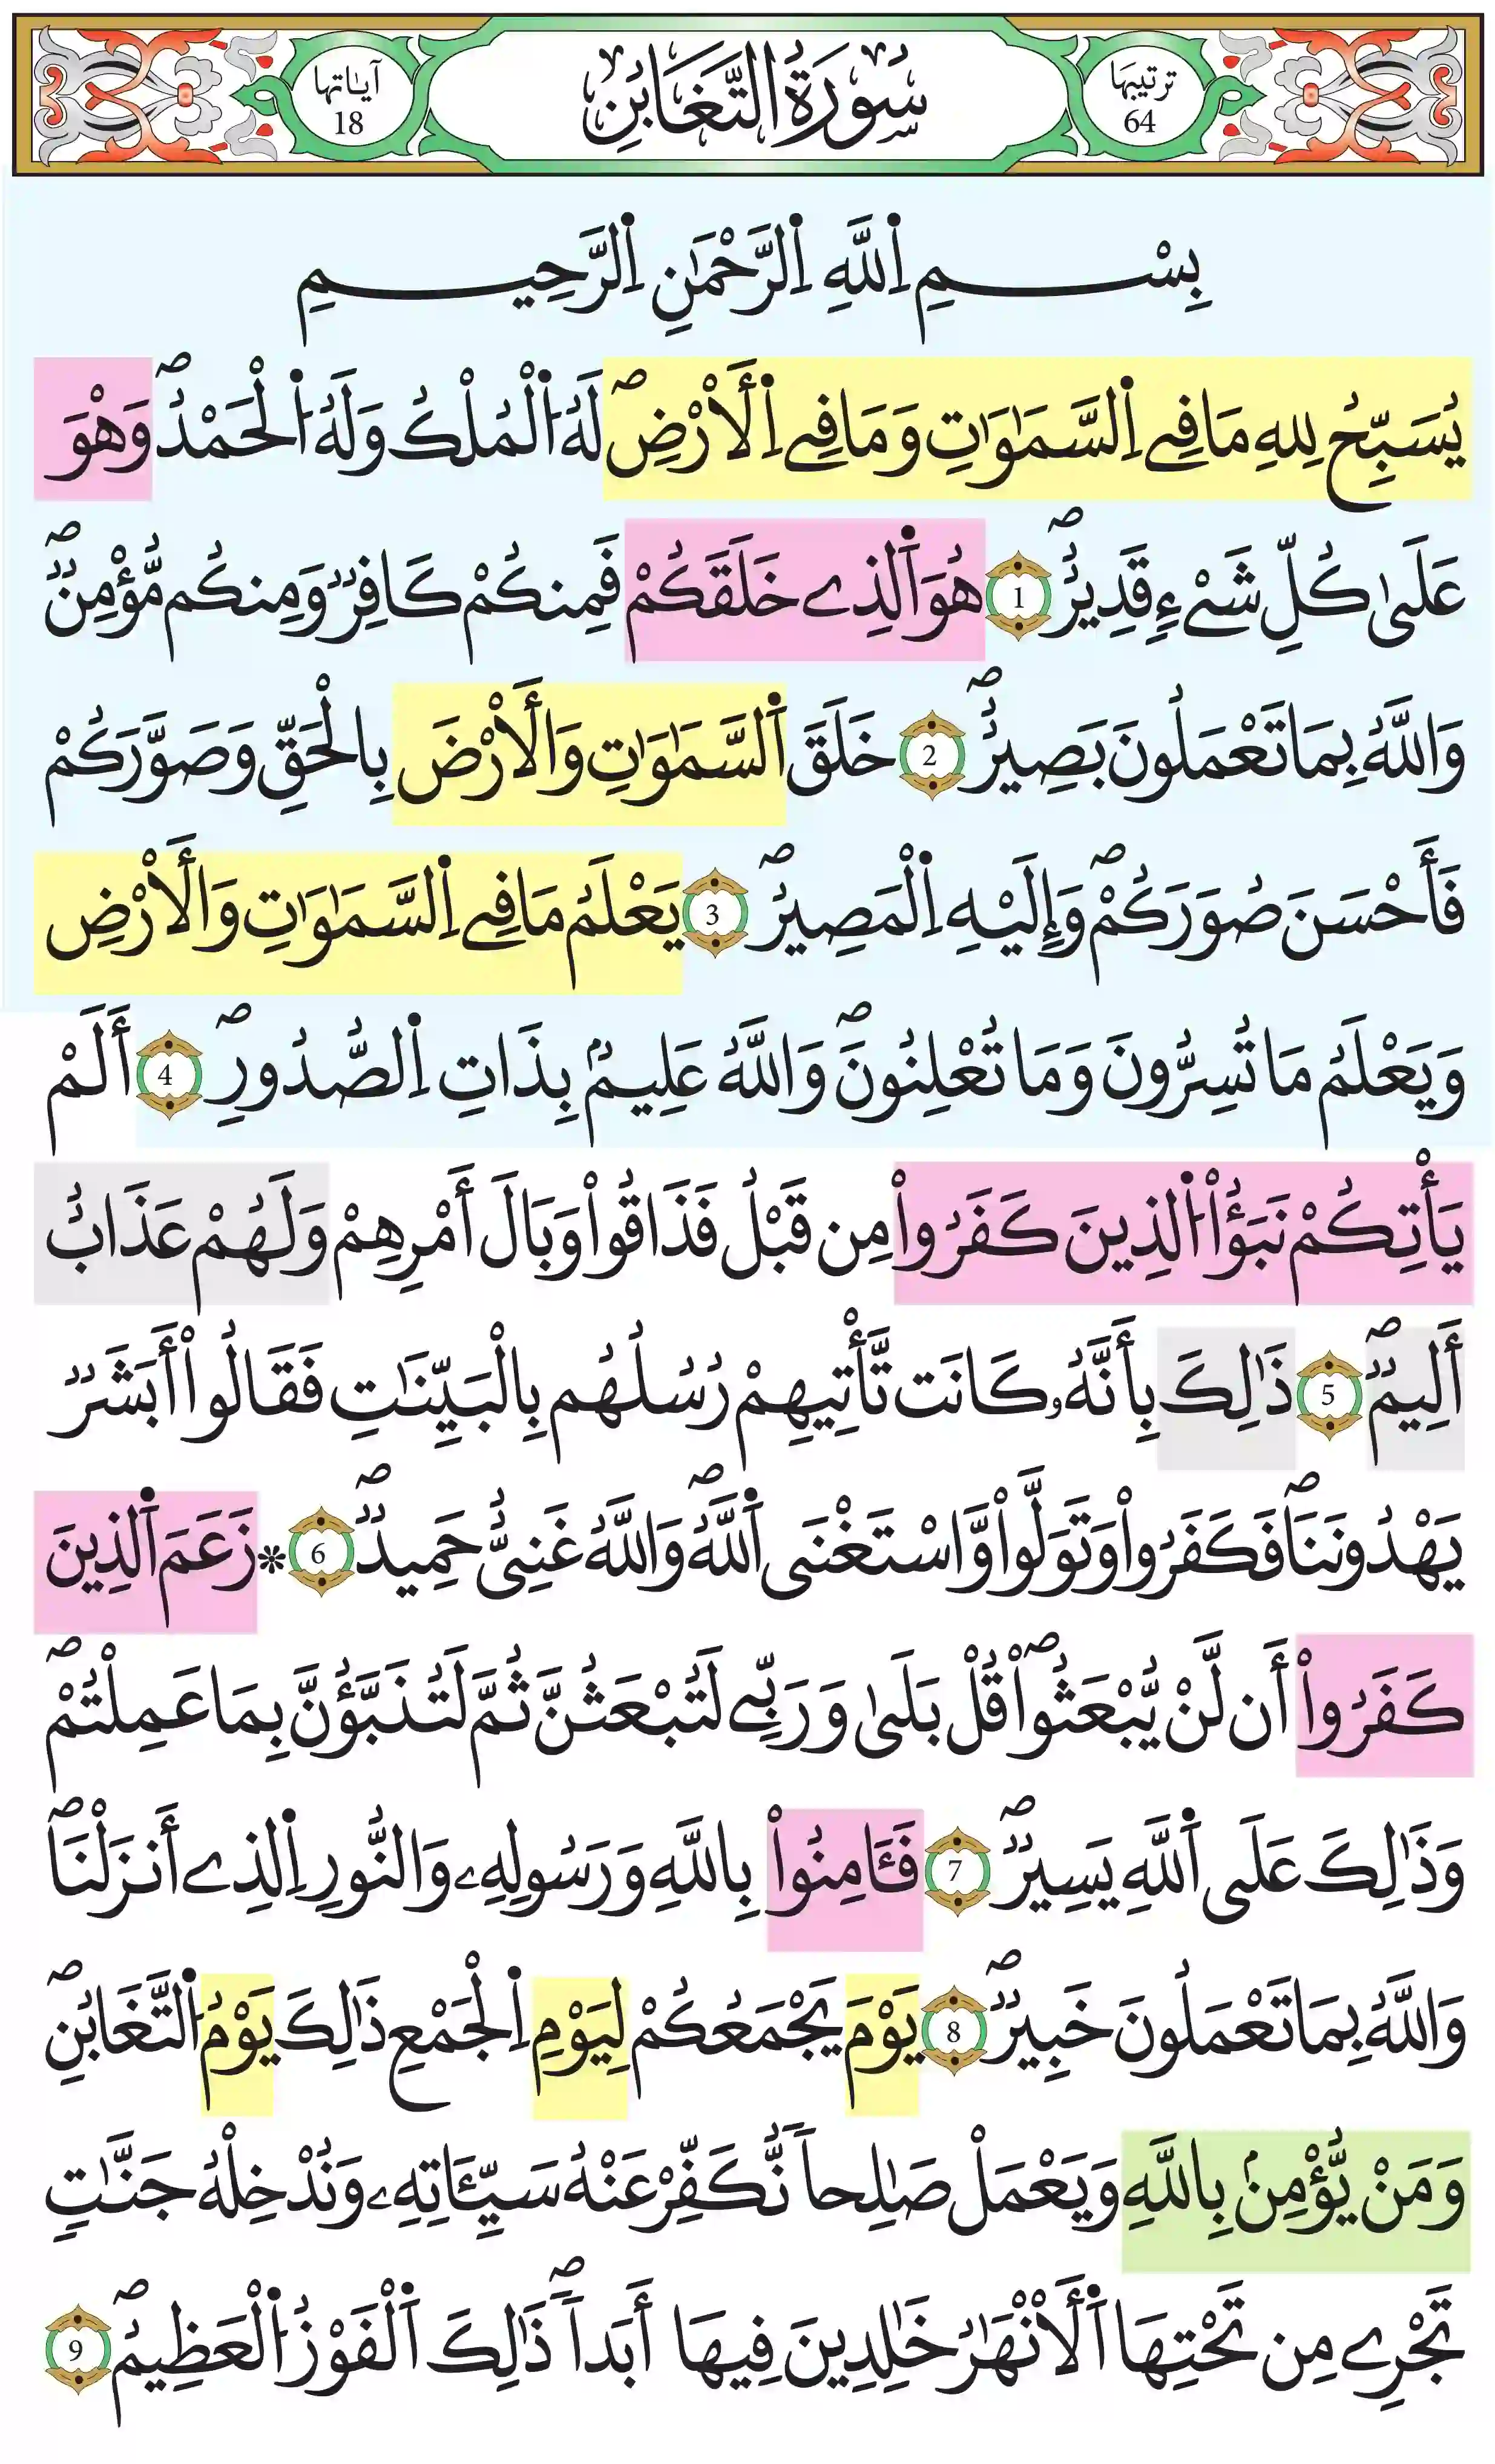 ترتيبها
64
سُورَةُ التَّغَابُنِ
آياتها
18
بِسْمِ اِ۬للَّهِ اِ۬لرَّحْمَٰنِ اِ۬لرَّحِيمِ
يُسَبِّحُ لِلهِ مَا فِے اِ۬لسَّمَٰوَٰتِ وَمَا فِے اِ۬لَارْضِۖ لَهُ اُ۬لْمُلْكُ وَلَهُ اُ۬لْحَمْدُۖ وَهْوَ
عَلَىٰ كُلِّ شَےْءٖ قَدِيرٌۖ 1 هُوَ اَ۬لذِے خَلَقَكُمْ فَمِنكُمْ كَافِرٞ وَمِنكُم مُّؤْمِنٞۖ
وَاللَّهُ بِمَا تَعْمَلُونَ بَصِيرٌۖ 2 خَلَقَ اَ۬لسَّمَٰوَٰتِ وَالَارْضَ بِالْحَقِّ وَصَوَّرَكُمْ
فَأَحْسَنَ صُوَرَكُمْۖ وَإِلَيْهِ اِ۬لْمَصِيرُۖ 3 يَعْلَمُ مَا فِے اِ۬لسَّمَٰوَٰتِ وَالَارْضِ
وَيَعْلَمُ مَا تُسِرُّونَ وَمَا تُعْلِنُونَۖ وَاللَّهُ عَلِيمُۢ بِذَاتِ اِ۬لصُّدُورِۖ 4 أَلَمْ
يَأْتِكُمْ نَبَؤُاْ اُ۬لذِينَ كَفَرُواْ مِن قَبْلُ فَذَاقُواْ وَبَالَ أَمْرِهِمْ وَلَهُمْ عَذَابٌ
أَلِيمٞۖ 5 ذَٰلِكَ بِأَنَّهُۥ كَانَت تَّأْتِيهِمْ رُسُلُهُم بِالْبَيِّنَٰتِ فَقَالُواْ أَبَشَرٞ
يَهْدُونَنَاۖ فَكَفَرُواْ وَتَوَلَّواْ وَّاسْتَغْنَى اَ۬للَّهُۖ وَاللَّهُ غَنِيٌّ حَمِيدٞۖ 6 ۞زَعَمَ اَ۬لذِينَ
كَفَرُواْ أَن لَّنْ يُّبْعَثُواْۖ قُلْ بَلَىٰ وَرَبِّے لَتُبْعَثُنَّ ثُمَّ لَتُنَبَّؤُنَّ بِمَا عَمِلْتُمْۖ
وَذَٰلِكَ عَلَى اَ۬للَّهِ يَسِيرٞۖ 7 فَـَٔامِنُواْ بِاللَّهِ وَرَسُولِهِۦ وَالنُّورِ اِ۬لذِے أَنزَلْنَاۖ
وَاللَّهُ بِمَا تَعْمَلُونَ خَبِيرٞۖ 8 يَوْمَ يَجْمَعُكُمْ لِيَوْمِ اِ۬لْجَمْعِ ذَٰلِكَ يَوْمُ اُ۬لتَّغَابُنِۖ
وَمَنْ يُّؤْمِنۢ بِاللَّهِ وَيَعْمَلْ صَٰلِحاٗ نُّكَفِّرْ عَنْهُ سَيِّـَٔاتِهِۦ وَنُدْخِلْهُ جَنَّٰتٖ
تَجْرِے مِن تَحْتِهَا اَ۬لَانْهَٰرُ خَٰلِدِينَ فِيهَا أَبَداٗۖ ذَٰلِكَ اَ۬لْفَوْزُ اُ۬لْعَظِيمُۖ 9